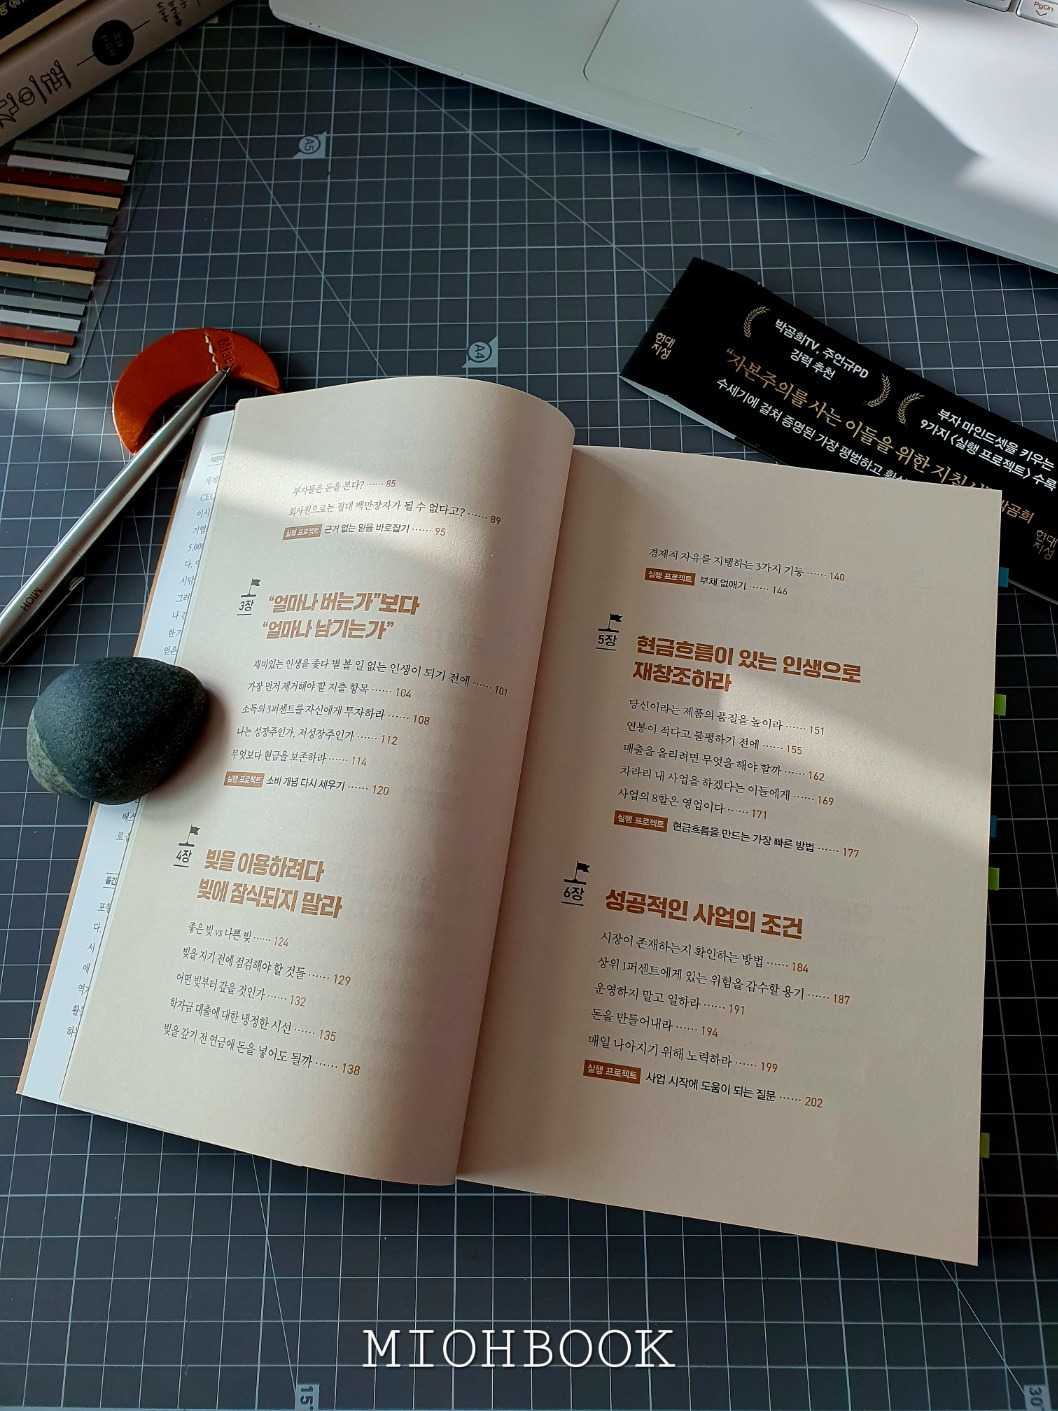 PgOn
A5
A4
현대
지성
박곰희TV, 주언규PD
강력 추천
“자본주의를 사는 이들을 위한
수세기에 걸쳐 증명된 가장 평범하고
부자 마인드셋을 키우는
9가지 〈실행 프로젝트〉 수록
박곰희
현대
지성
MIOH
부자들은 돈을 본다? …… 85
회사원으로는 절대 백만장자가 될 수 없다고? …… 89
실행 프로젝트 근거 없는 믿음 바로잡기 …… 95
3장
“얼마나 버는가”보다
“얼마나 남기는가”
재미있는 인생을 좇다 별 볼 일 없는 인생이 되기 전에 …… 101
가장 먼저 제거해야 할 지출 항목 …… 104
소득의 3퍼센트를 자신에게 투자하라 …… 108
나는 성장주인가, 저성장주인가 …… 112
무엇보다 현금을 보존하라 …… 114
실행 프로젝트 소비 개념 다시 세우기 …… 120
4장
빚을 이용하려다
빚에 잠식되지 말라
좋은 빚 vs 나쁜 빚 …… 124
빚을 지기 전에 점검해야 할 것들 …… 129
어떤 빚부터 갚을 것인가 …… 132
학자금 대출에 대한 냉정한 시선 …… 135
빚을 갚기 전 연금에 돈을 넣어도 될까 …… 138
경제적 자유를 지탱하는 3가지 기둥 …… 140
실행 프로젝트 부채 없애기 …… 146
5장
현금흐름이 있는 인생으로
재창조하라
당신이라는 제품의 품질을 높이라 …… 151
연봉이 적다고 불평하기 전에 …… 155
매출을 올리려면 무엇을 해야 할까 …… 162
차라리 내 사업을 하겠다는 이들에게 …… 169
사업의 8할은 영업이다 …… 171
실행 프로젝트 현금흐름을 만드는 가장 빠른 방법 …… 177
6장
성공적인 사업의 조건
시장이 존재하는지 확인하는 방법 …… 184
상위 1퍼센트에게 있는 위험을 감수할 용기 …… 187
운영하지 말고 일하라 …… 191
돈을 만들어내라 …… 194
매일 나아지기 위해 노력하라 …… 199
실행 프로젝트 사업 시작에 도움이 되는 질문 …… 202
MIOHBOOK
15
30